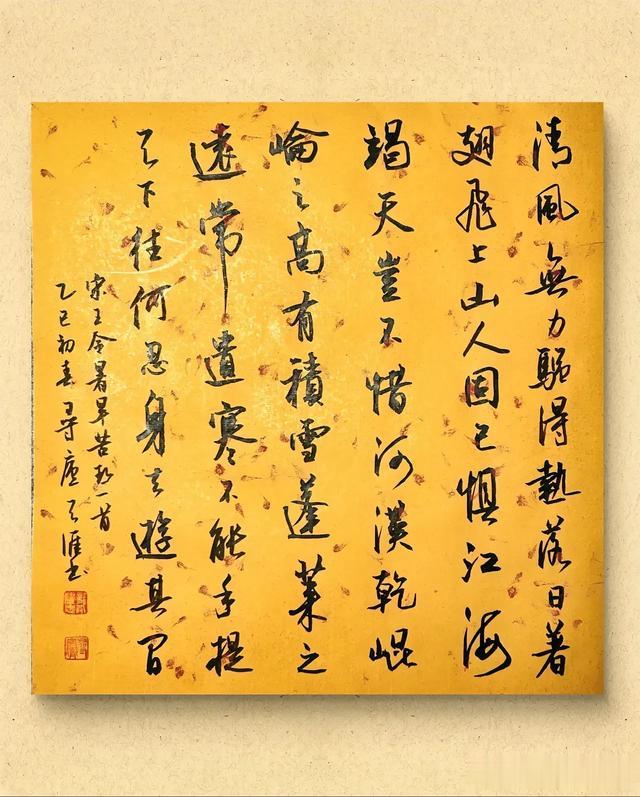 清風無力驅得熱落日著
翅飛上山人固已懼江海
竭天豈不惜河漢乾崐
崘之高有積雪蓬莱之
遠常遺寒不能手提
天下往何忍身去遊其間
宋王令暑旱苦熱一首
乙巳初春尋廬天涯书